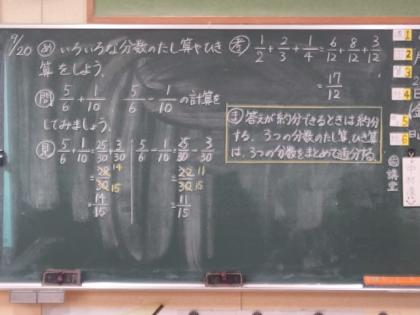 9/20 め いろいろな分数のたし算やひき
算をしよう。
問 5/6 + 1/10 5/6 - 1/10 の計算を
してみましょう。
見 5/6 + 1/10 = 25/30 + 3/30
= 28/30 14 15
= 14/15
5/6 - 1/10 = 25/30 - 3/30
= 22/30 11 15
= 11/15
考 1/2 + 2/3 + 1/4 = 6/12 + 8/12 + 3/12
= 17/12
ま 答えが約分できるときは約分
する。3つの分数のたし算、ひき算
は、3つの分数をまとめて通分する。
1
2
3
4
5
6
月
日
講堂